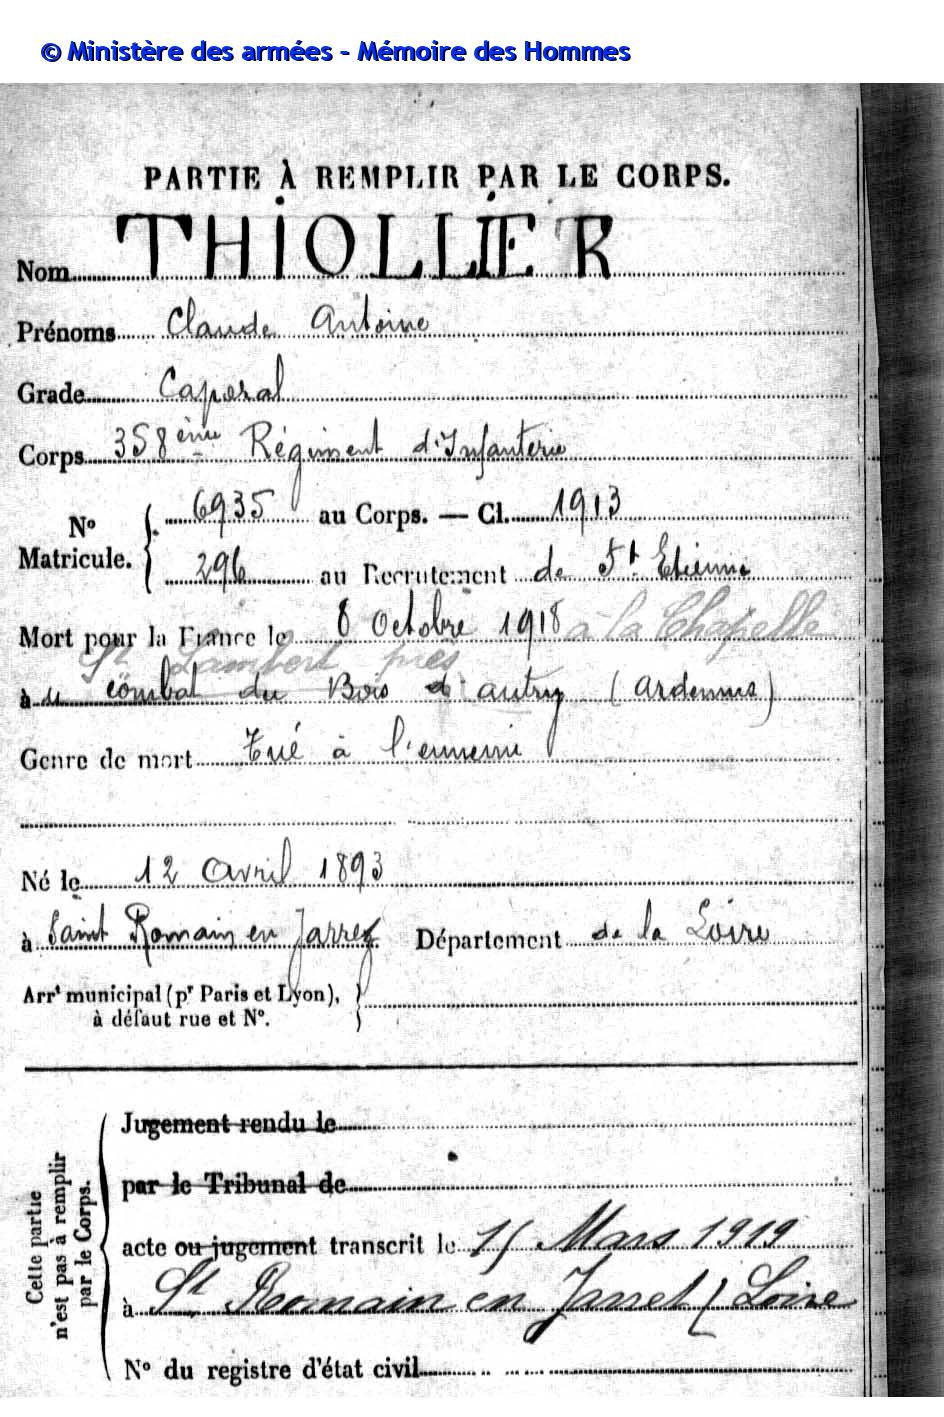 © Ministère des armées - Mémoire des Hommes
PARTIE À REMPLIR PAR LE CORPS.
Nom THIOLLIER
Prénoms Claude Antoine
Grade Caporal
Corps 358ème Régiment d'Infanterie
N° Matricule. 6935 au Corps. — Cl. 1913
296 au Recrutement de St Etienne
Mort pour la France le 8 Octobre 1918 à la Chapelle
St Lambert près
à u combat du Bois d'autry (Ardennes)
Genre de mort Tué à l'ennemi
Né le 12 Avril 1893
à Saint Romain en Jarrez Département de la Loire
Arrt municipal (pr Paris et Lyon),
à défaut rue et N°.
Cette partie
n'est pas à remplir
par le Corps.
Jugement rendu le
par le Tribunal de
acte ou jugement transcrit le 15 Mars 1919
à St Romain en Jarret (Loire
N° du registre d'état civil